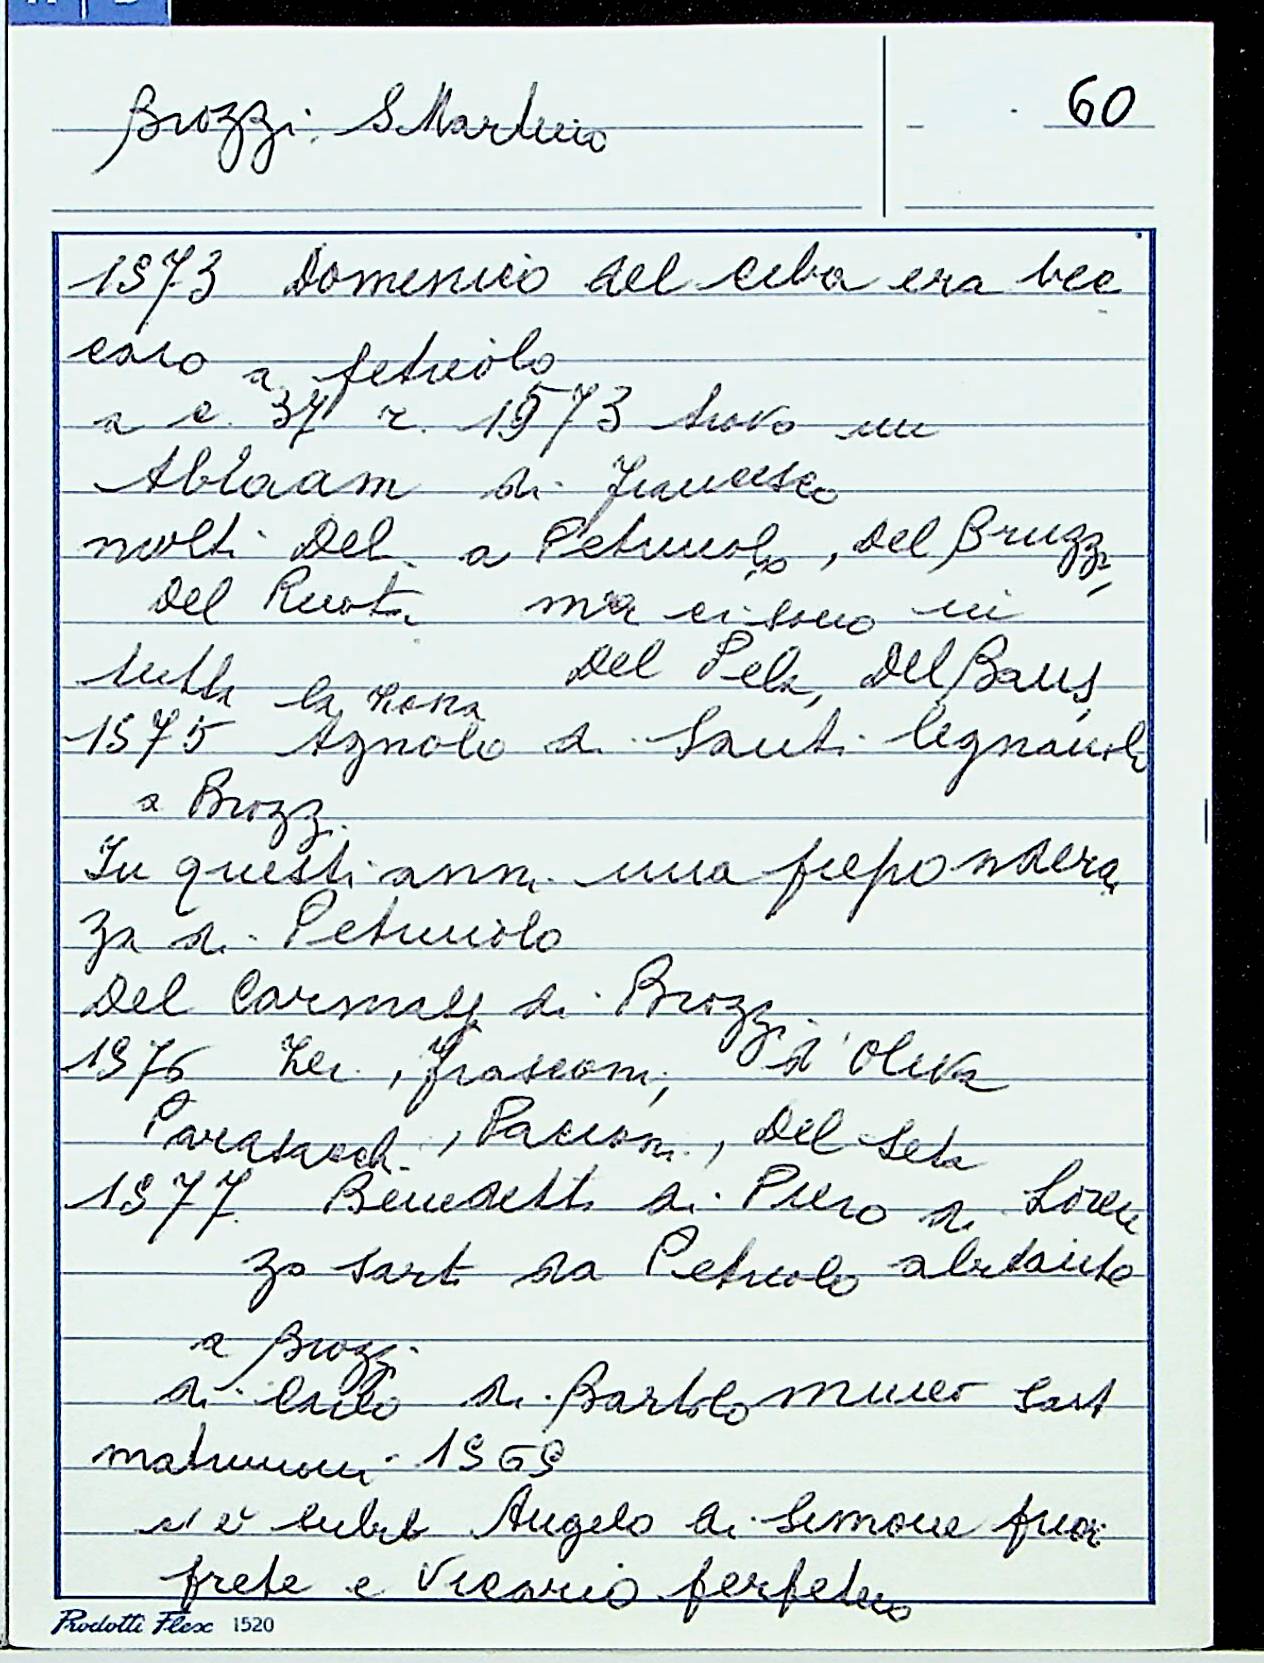 Brozzi: S Martino
60
1573 Domenico del era bec
caro a petriolo
a c. 37 r. 1573 trovo un
Abraam di Francesco
molti Del a Petriolo, del Bruzzi,
Del Ruota ma ci sono in
tutta la zona Del Pela, Del Baus,
1575 Agnolo di Santi legnaiolo
a Brozzi
In questi anni una prepondera
za di Petriolo
Del di Brozzi
1576 Zei, Frasconi, d'Oliva
, Pacion, Del Seta
1577 Benedetti di Piero di Loren
zo sarti da Petriolo abitante
a Brozzi
di di Bartolommeo sart
matrimoni 1569
c'è subito Angelo di Simone fuoi
prete e Vicario perpetuo
Prodotti Flex 1520